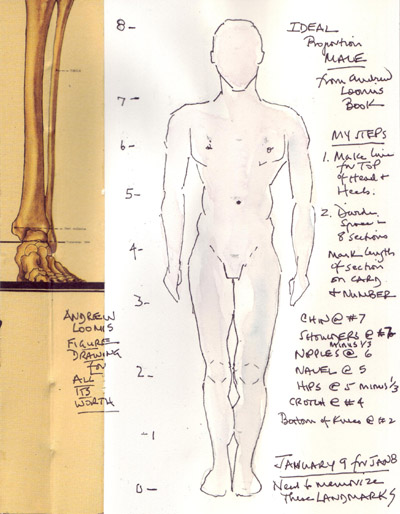 IDEAL
Proportion
MALE
from Andrew
Loomis
BOOK
MY STEPS
1. Make line
for TOP
of Head &
Heels.
2. Divide
Space in
8 sections
Mark length
of section
on CARD
& NUMBER
CHIN @ #7
SHOULDERS @ #7
MINUS 1/3
NIPPLES @ 6
NAVEL @ 5
HIPS @ 5 MINUS 1/3
CROTCH @ #4
Bottom of Knees @ #2
JANUARY 9 for JAN 8
Need to memorize
These LANDMARKS
8-
7-
6-
5-
4-
3-
2-
-1
0-
ANDREW
LOOMIS
FIGURE
DRAWING
for
ALL
ITS
WORTH